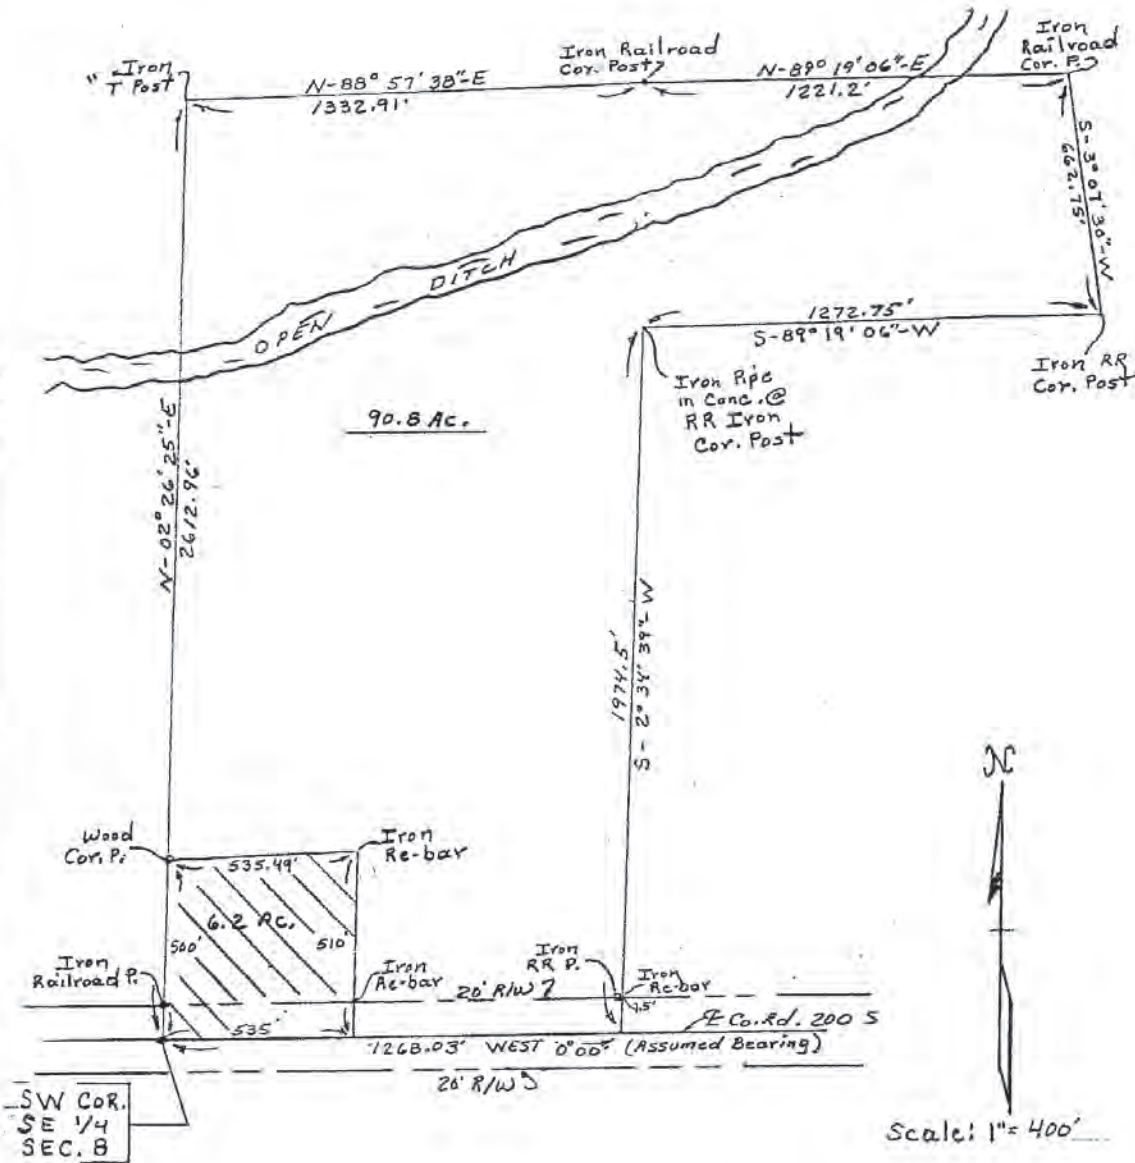 Iron
"T" Post
N-88° 57' 38"-E
1332.91'
Iron Railroad
Cor. Post
N-89° 19' 06"-E
1221.2'
Iron
Railroad
Cor. P.
S-3° 07' 30"-W
662.75'
OPEN DITCH
1272.75'
S-89° 19' 06"-W
Iron RR
Cor. Post
Iron Pipe
in Conc. @
RR Iron
Cor. Post
90.8 Ac.
N-02° 26' 25"-E
2612.96'
1974.5'
S-2° 34' 39"-W
N
Wood
Cor. P.
Iron
Re-bar
535.49'
6.2 AC.
500'
510'
Iron
Railroad P.
Iron
Re-bar
20' R/W
Iron
RR P.
Iron
Re-bar
1.5'
535'
℄ Co. Rd. 200 S
1268.03' WEST 0°00" (Assumed Bearing)
20' R/W
SW COR.
SE 1/4
SEC. 8
Scale: 1"= 400'